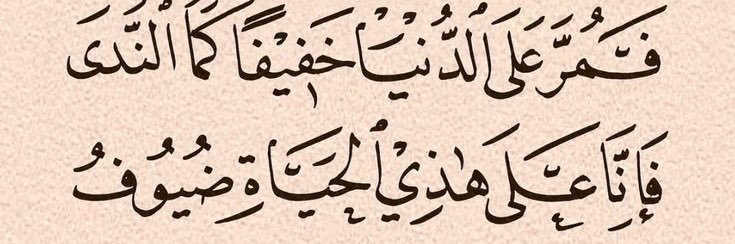 فَمُرَّ عَلَى ٱلدُّنْيَا خَفِيْفًا كَمَا ٱلنَّدَى
فَإِنَّا عَلَى هَٰذِيْ ٱلْحَيَاةِ ضُيُوفُ